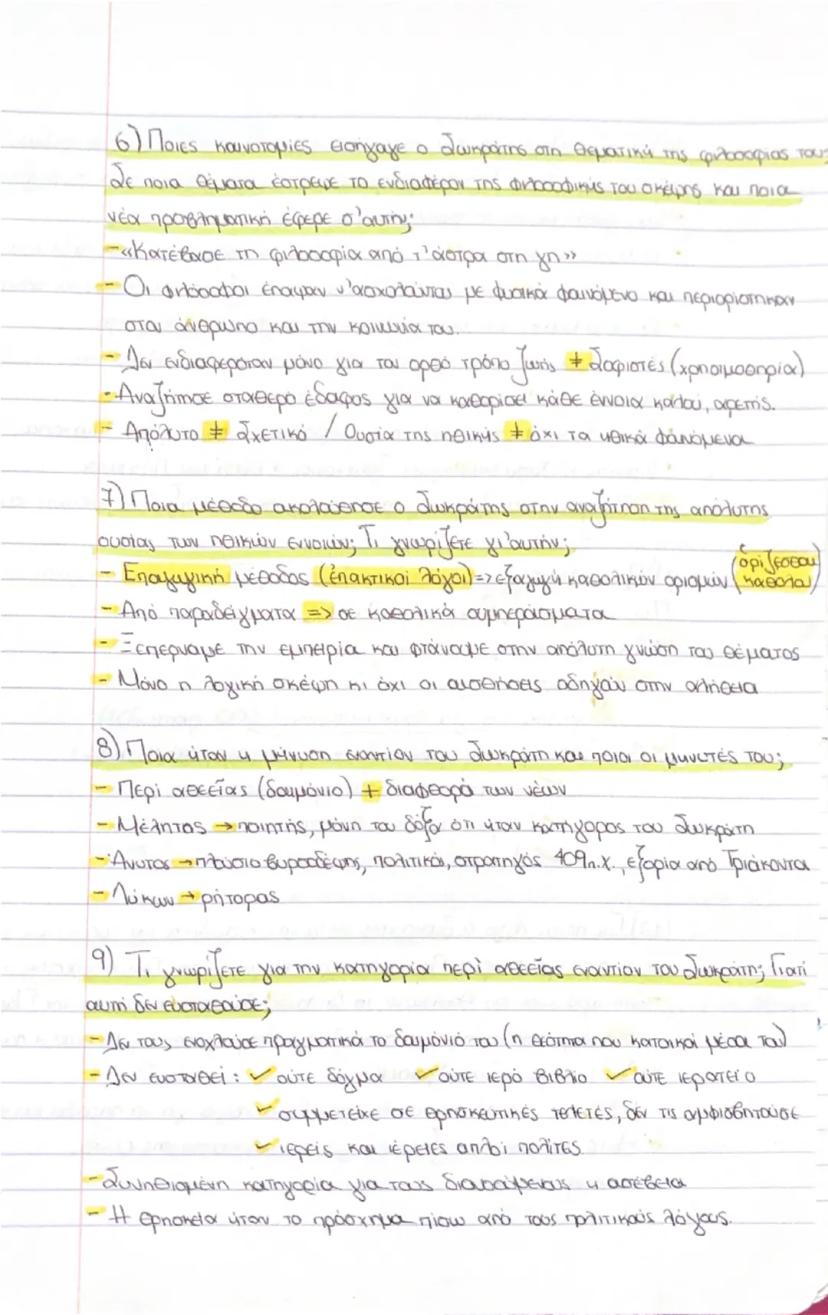 6) Ποιες καινοτομίες εισήγαγε ο Σωκράτης στη θεματική της φιλοσοφίας του;
Σε ποια θέματα έστρεψε το ενδιαφέρον της φιλοσοφικής του σκέψης και ποια
νέα προβληματική έφερε σ'αυτή;
- «Κατέβασε τη φιλοσοφία από τ'άστρα στη γη»
- Οι φιλόσοφοι έπαψαν ν'ασχολούνται με φυσικά φαινόμενα και περιορίστηκαν
στον άνθρωπο και την κοινωνία του.
- Δεν ενδιαφερόταν μόνο για τον ορθό τρόπο ζωής ≠ Σοφιστές (χρησιμοθηρία)
- Αναζήτησε σταθερό έδαφος για να καθορίσει κάθε έννοια καλού, αρετής.
- Απόλυτο ≠ Σχετικό / Ουσία της ηθικής ≠ όχι τα ηθικά φαινόμενα
7) Ποια μέθοδο ακολούθησε ο Σωκράτης στην αναζήτηση της απόλυτης
ουσίας των ηθικών εννοιών; Τι γνωρίζετε γι'αυτήν;
- Επαγωγική μέθοδος (ἐπακτικοί λόγοι) => εξαγωγή καθολικών ορισμών (ὁρίζεσθαι καθόλου)
- Από παραδείγματα => σε καθολικά συμπεράσματα
- Ξεπερνάμε την εμπειρία και φτάνουμε στην απόλυτη γνώση του θέματος
- Μόνο η λογική σκέψη κι όχι οι αισθήσεις οδηγούν στην αλήθεια
8) Ποια ήταν η μήνυση εναντίον του Σωκράτη και ποιοι οι μηνυτές του;
- Περί αθεΐας (δαιμόνιο) + διαφθορά των νέων
- Μέλητος → ποιητής, μόνη του δόξα ότι ήταν κατήγορος του Σωκράτη
- Άνυτος → πλούσιο βυρσοδέψης, πολιτικός, στρατηγός 409 π.Χ., εξορία από Τριάκοντα
- Λύκων → ρήτορας
9) Τι γνωρίζετε για την κατηγορία περί αθεΐας εναντίον του Σωκράτη; Γιατί
αυτή δεν ευσταθούσε;
- Δεν τους ενοχλούσε πραγματικά το δαιμόνιό του (η θεότητα που κατοικεί μέσα του)
- Δεν ευσταθεί: ✓ ούτε δόγμα ✓ ούτε ιερό βιβλίο ✓ ούτε ιερατείο
✓ συμμετείχε σε θρησκευτικές τελετές, δεν τις αμφισβητούσε
✓ ιερείς και ιέρειες απλοί πολίτες
- Συνηθισμένη κατηγορία για τους διανοούμενους η ασέβεια
- Η θρησκεία ήταν το πρόσχημα πίσω από τους πολιτικούς λόγους.